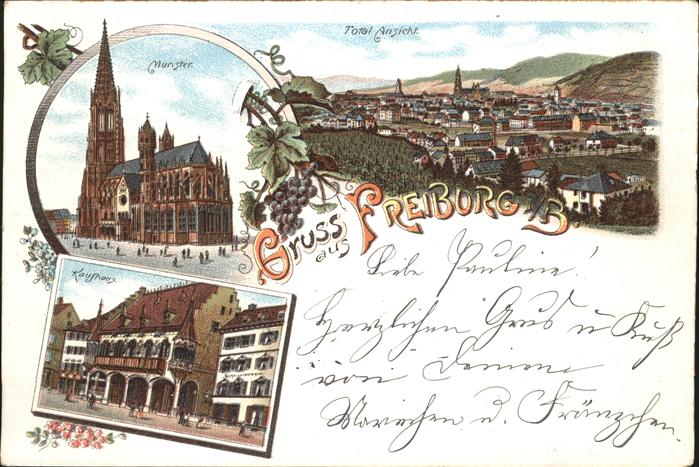 Münster.
Total Ansicht.
Gruss aus FREIBURG i/B.
Kaufhaus.
Liebe Pauline!
Herzlichen Grus u Kuß
von Deinen
Mariechen u. Fränzchen.